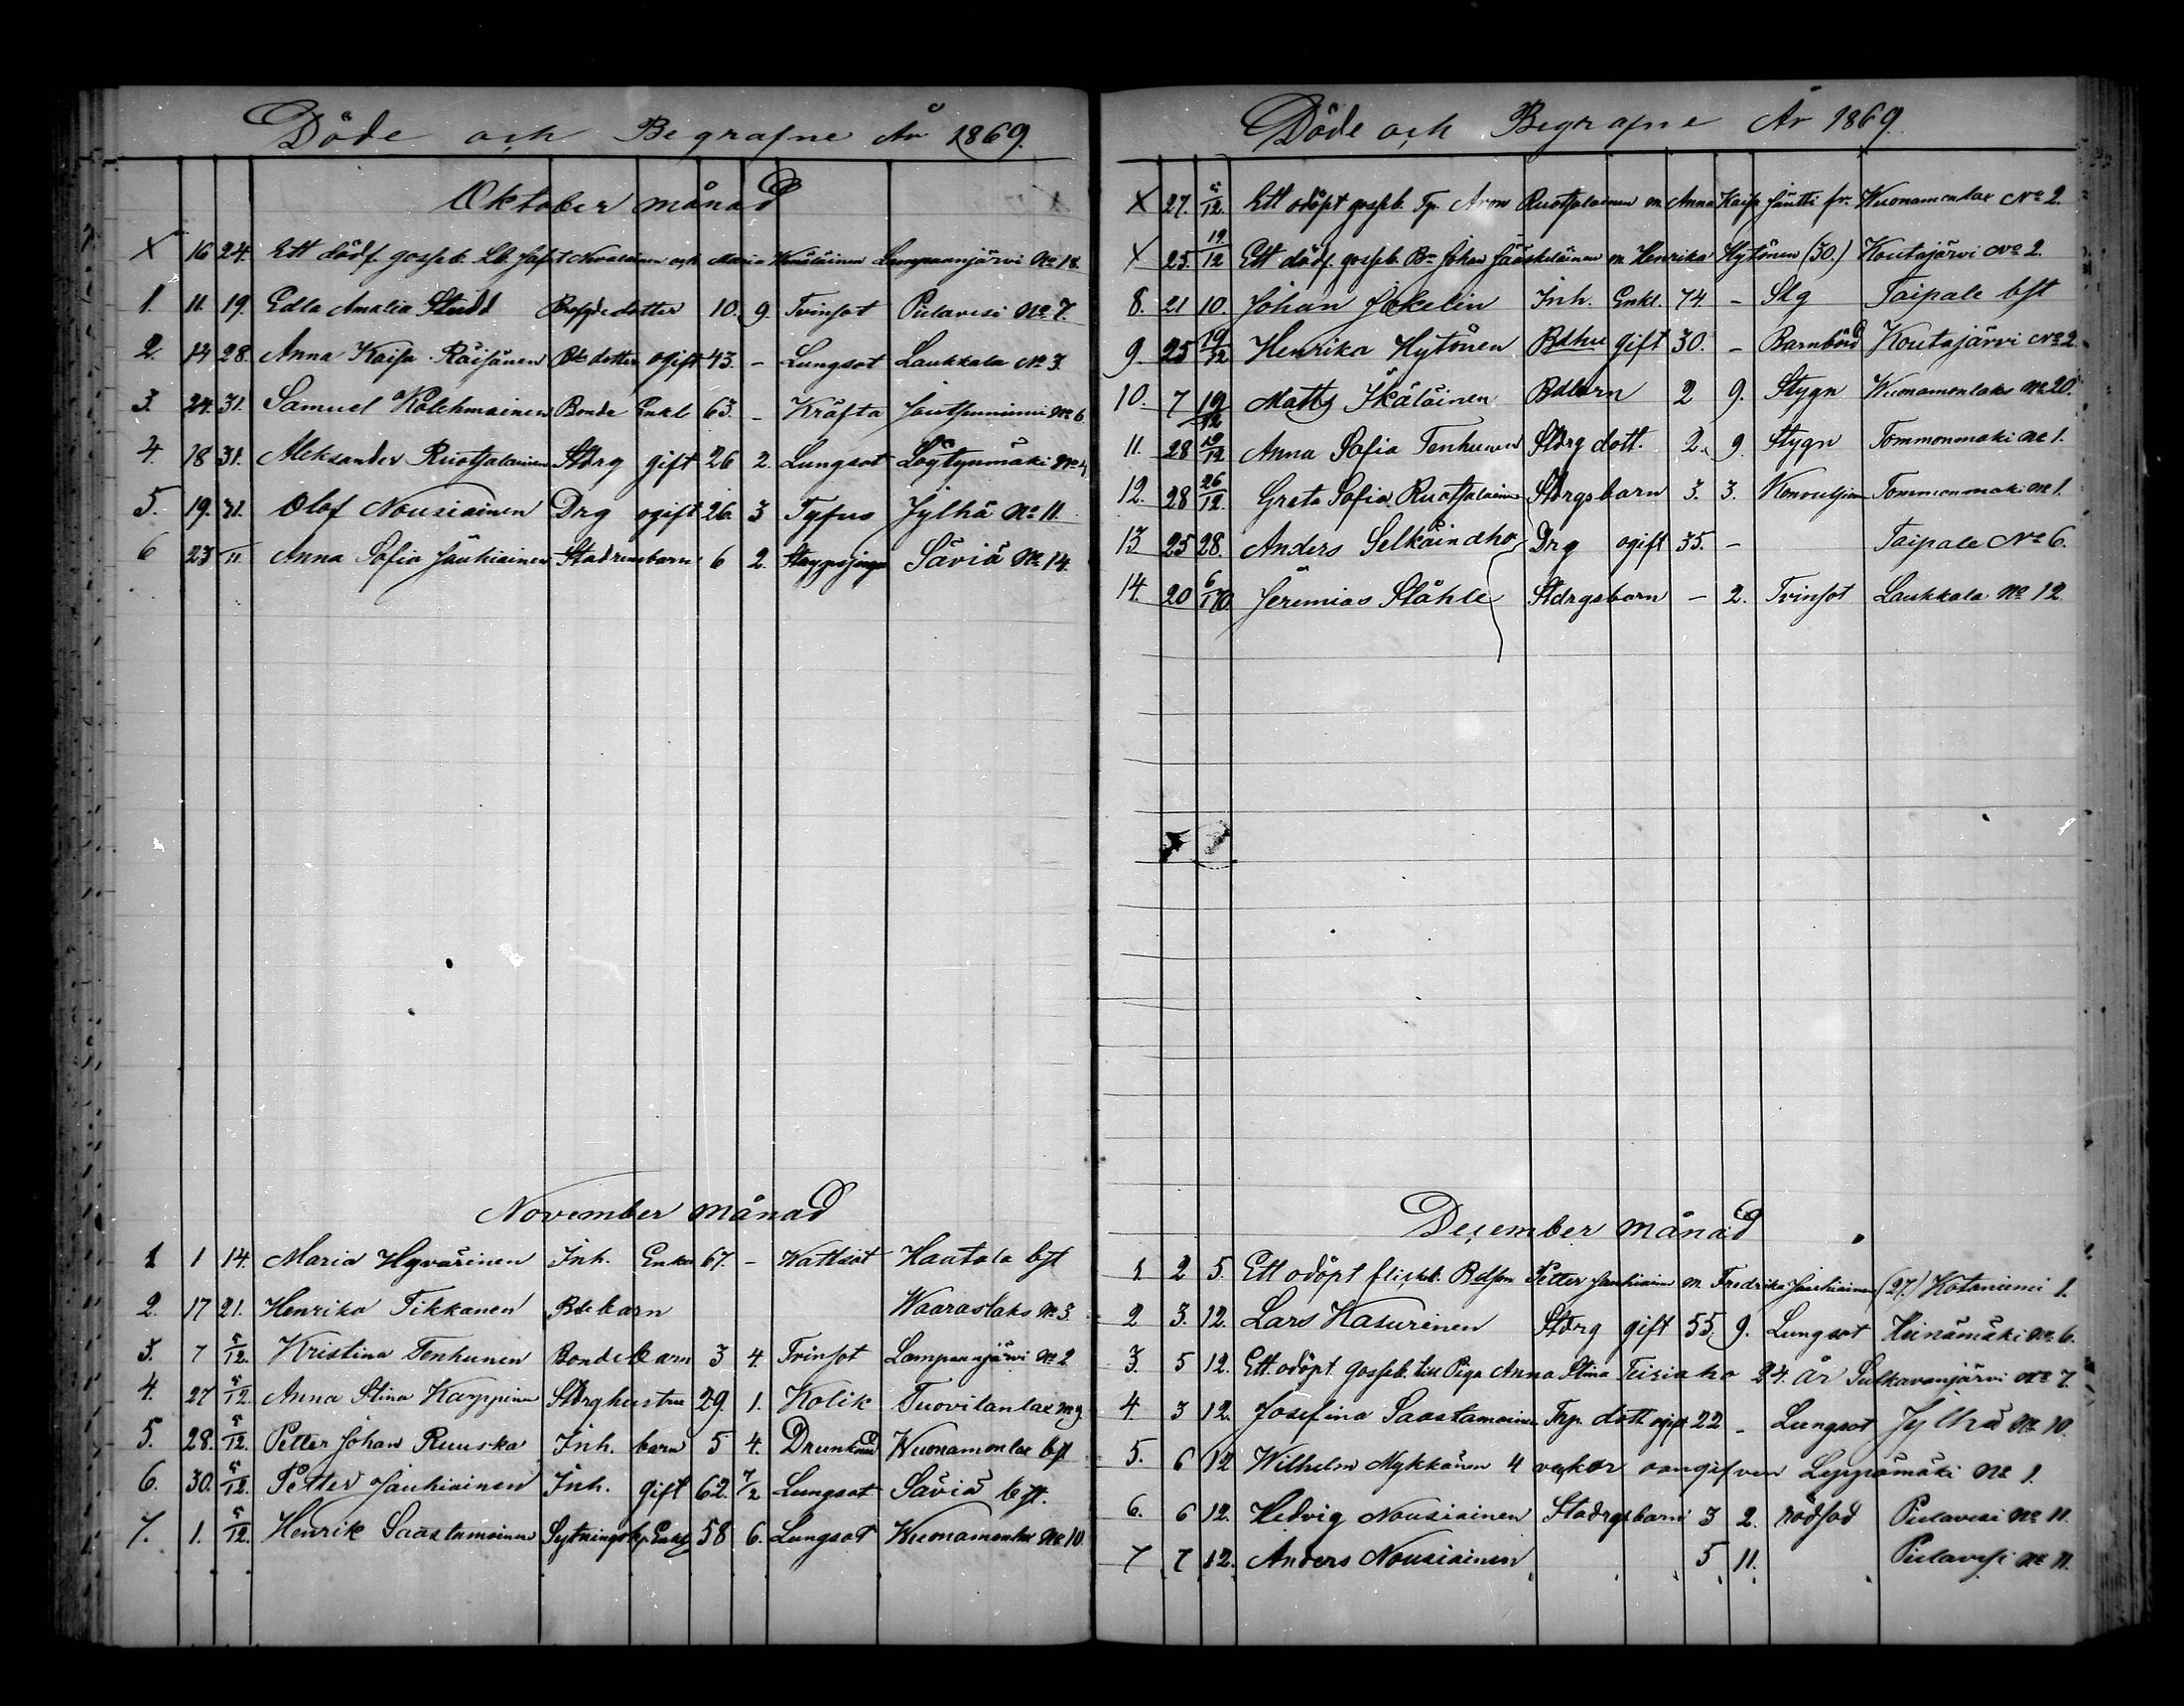 Döde och Begrafne År 1869.
Oktober månad
X 16 24. Ett dödf. gosseb. Maria Lampaanjärvi No 18.
1. 11. 19. Edla Amalia dotter 10. 9. Tvinsot Pielavesi No 7.
2. 14 28. Anna Kaisa Räisänen dotter ogift 43. - Lungsot Laukkala No 3.
3. 24. 31. Samuel Kolehmainen Bonde Enkl 63. - Kräfta No 6
4. 18 31. Aleksander Ruotsalainen Stdrg gift 26 2. Lungsot Löytynmäki No 4
5. 19. 31. Olof Nousiainen Drg ogift 26. 3 Tyfus Jylhä No 11.
6 23 11. Anna Sofia Jauhiainen 6 2. Säviä No 14.
November månad
1 1 14. Maria Hyvärinen Inh. Enka 67. - Wattsot Hautala bst
2. 17 21. Henrika Tikkanen Bdebarn Waaraslaks No 3.
3. 7 5/12. Kristina Tenhunen Bondebarn 3 4. Tvinsot Lampaanjärvi No 2
4. 27 5/12. Anna Stina Karppinen Stdrghustru 29. 1. Kolik Tuovilanlax
5. 28. 5/12. Petter Johan Ruuska Inh. barn 5 4. Drunknad Wuonamonlax bst
6. 30. 5/12. Petter Jauhiainen Inh. gift 62. 7/2 Lungsot Säviä bst.
7. 1. 5/12. Henrik Saastamoinen 58 6. Lungsot Wuonamonlax No 10.
Döde och Begrafne År 1869.
X 27. 5/12. Ett odöpt gosseb. Tp. Aron Ruotsalainen m. Anna Kaisa Jäntti fr. Wuonamonlax No 2.
X 25. 19/12 Ett dödf. gosseb. Bn Johan Jääskeläinen m Henrika Hytönen (30.) Koutajärvi No 2.
8. 21 10. Johan Jokelin Inh. Enkl. 74. - Slg Taipale bst
9. 25 19/12 Henrika Hytönen Bdhu gift 30. - Barnbörd Koutajärvi No 2.
10. 7 19/12 Matts Ikäläinen Bdbarn 2 9. Stygn Wuonamonlaks No 20.
11. 28 19/12 Anna Sofia Tenhunen Stdrg dott. 2. 9. Stygn Tommonmäki No 1.
12. 28 26/12. Greta Sofia Ruotsalainen Stdrgsbarn 3. 3. Konvulsion Tommonmäki No 1.
13 25 28. Anders Selkäinaho Drg ogift 35. - Taipale No 6.
14. 20 6/1 70. Jeremias Ståhle Stdrgsbarn - 2. Tvinsot Laukkala No 12.
December månad
1. 2 5. Ett odöpt flickeb. Bdson Petter Jauhiainen m Fredrika Jauhiainen (27.) Kotaniemi 1.
2 3. 12. Lars Hasurinen Stdrg gift 55. 9. Lungsot Heinämäki No 6.
3. 5 12. Ett odöpt gosseb. till Piga Anna Stina Teisiaho 24. år Sulkavanjärvi No 7.
4. 3 12. Josefina Saastamoinen Trp. dott ogift 22 - Lungsot Jylhä No 10.
5. 6 12 Wilhelm Mykkänen 4 veckor oangifven Leppämäki No 1.
6. 6 12. Hedvig Nousiainen Stadrgsbarn 3 2. rödsot Pielavesi No 11.
7 7 12. Anders Nousiainen 5 11. Pielavesi No 11.